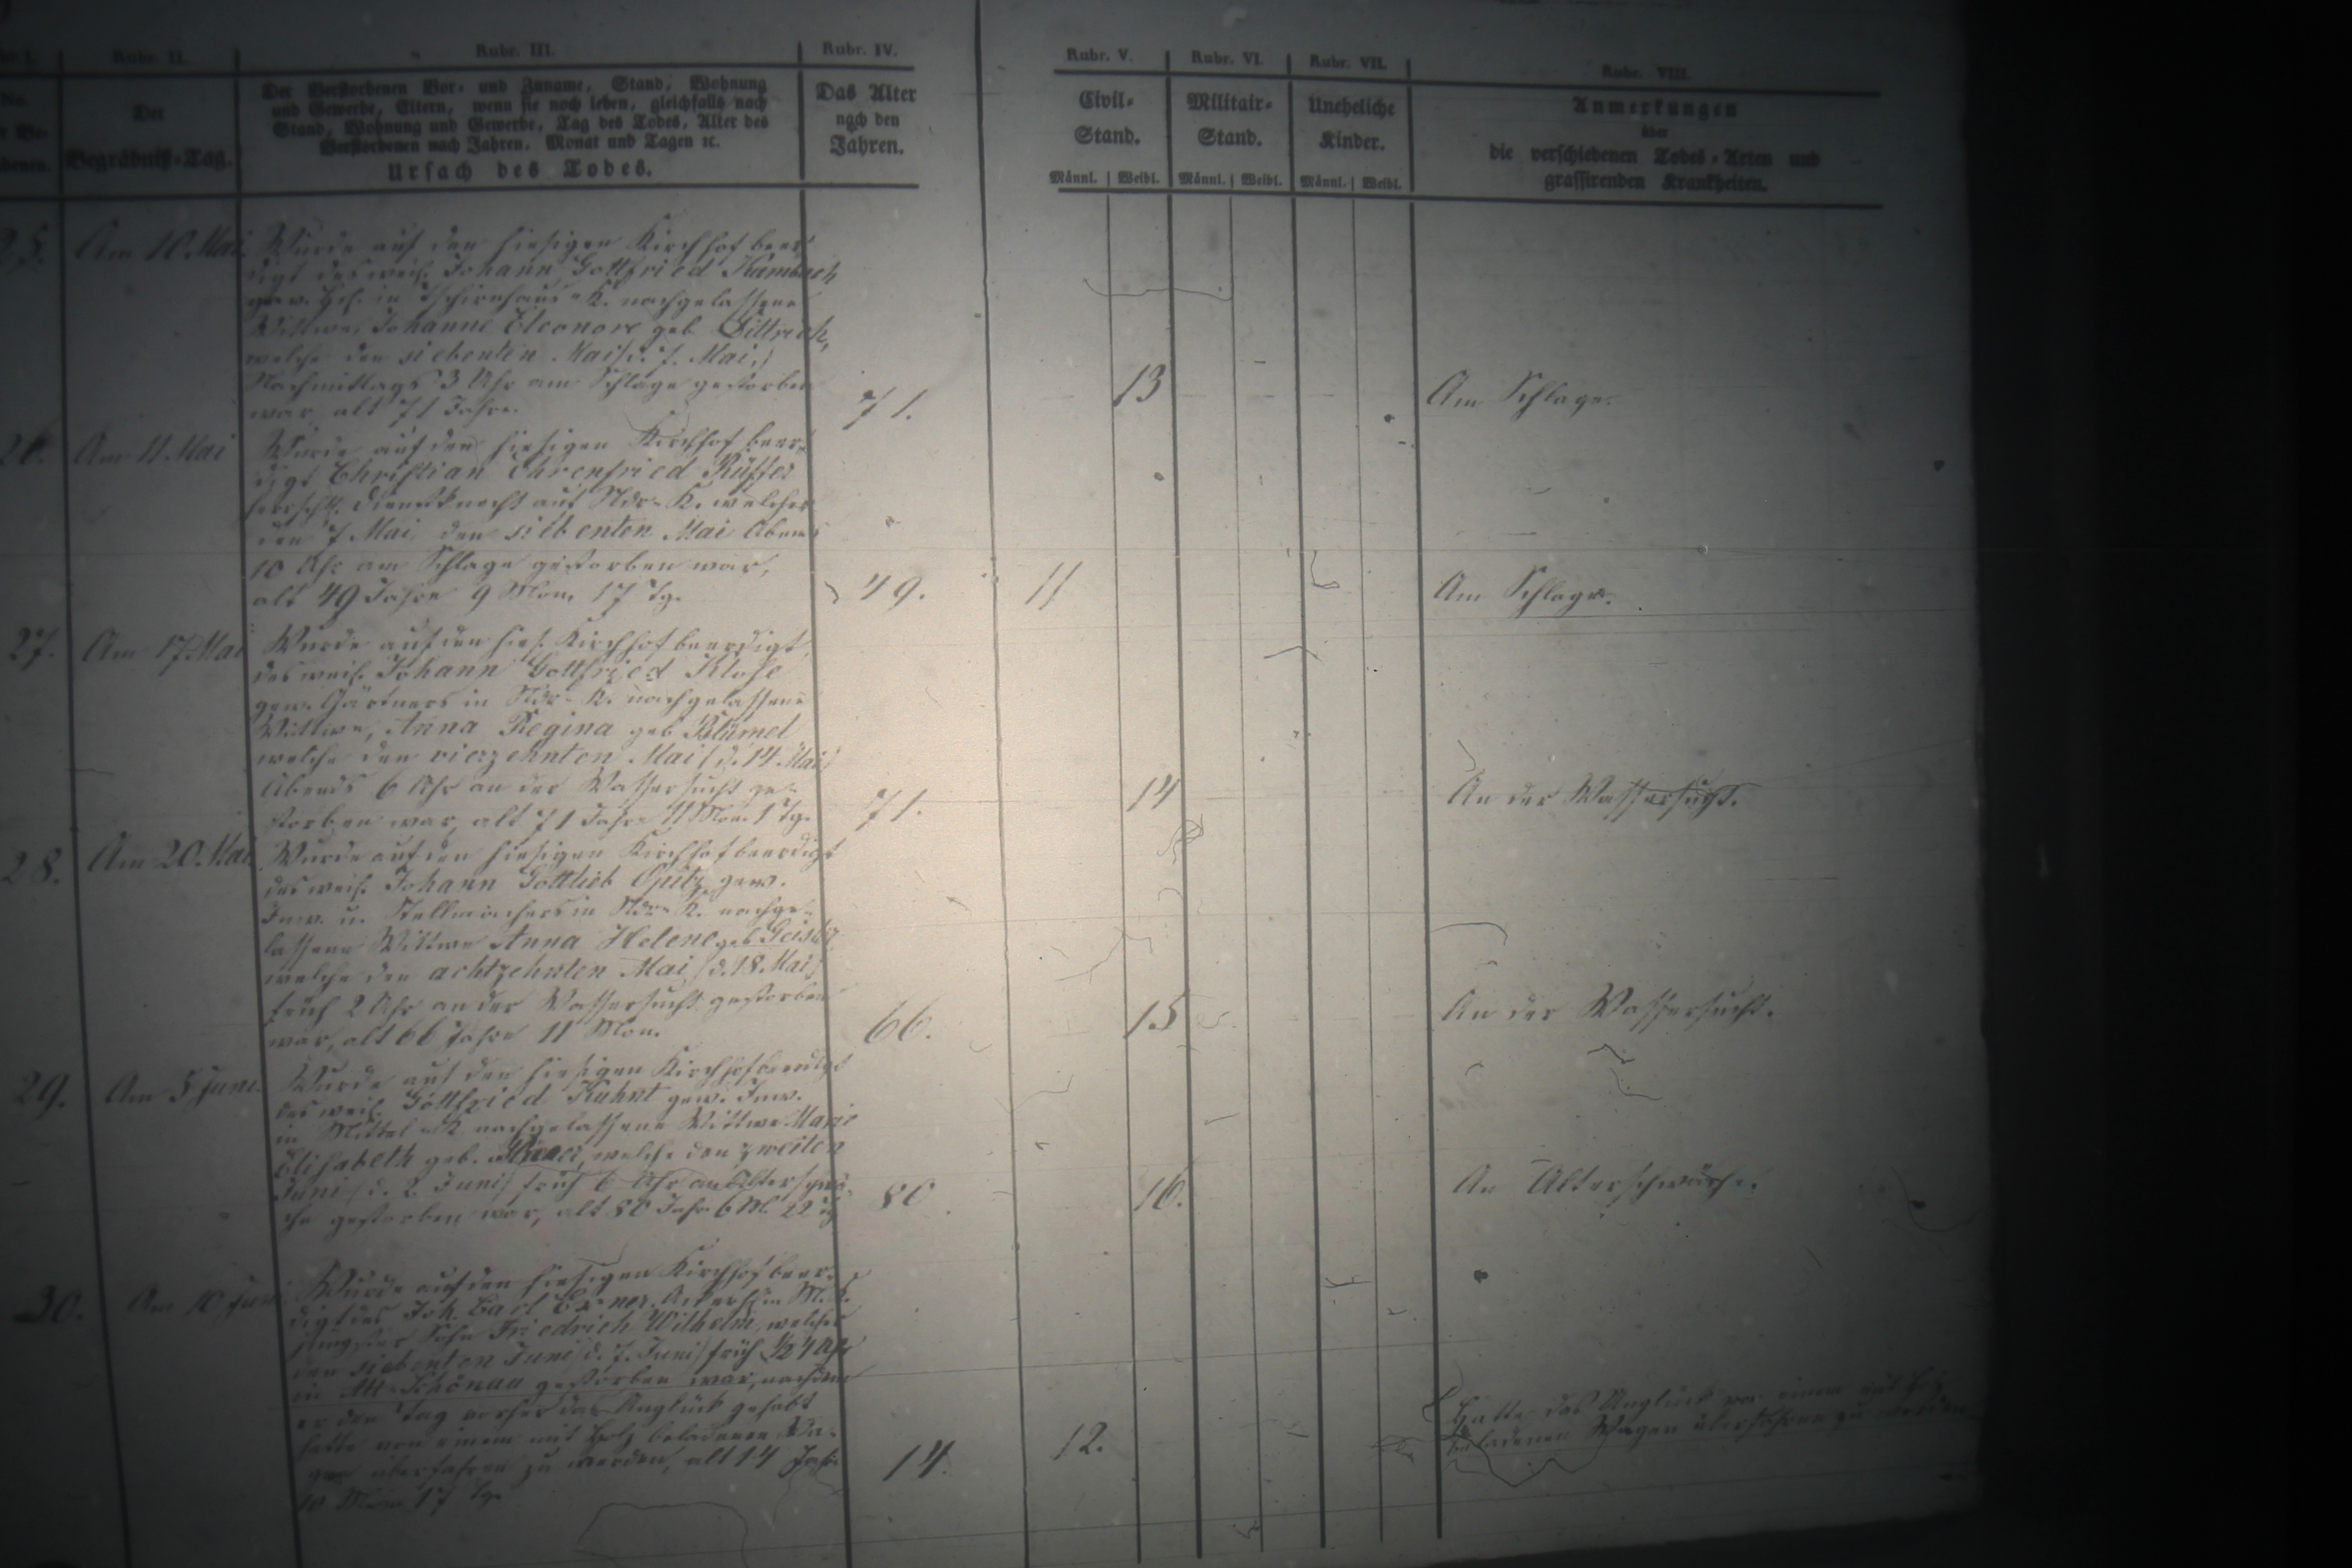 Rubr. II. Rubr. III. Rubr. IV. Rubr. V. Rubr. VI. Rubr. VII. Rubr. VIII.
Der
Begräbniß-Tag.
Der Verstorbenen Vor- und Zuname, Stand, Wohnung
und Gewerbe, Eltern, wenn sie noch leben, gleichfalls nach
Stand, Wohnung und Gewerbe, Tag des Todes, Alter des
Verstorbenen nach Jahren, Monat und Tagen ꝛc.
Ursach des Todes.
Das Alter
nach den
Jahren.
Civil-
Stand.
Männl. Weibl.
Militair-
Stand.
Männl. Weibl.
Uneheliche
Kinder.
Männl. Weibl.
Anmerkungen
über
die verschiedenen Todes-Arten und
grassirenden Krankheiten.
25. Am 10. Mai. Wurde auf den hiesigen Kirchhof beer-
digt des weil. Johann Gottfried Kambach
gew. in Tschirnhaus-K. nachgelassene
Wittwe, Johanne Eleonore geb. Dittrich,
welche den siebenten Mai (d. 7. Mai)
Nachmittags 3 Uhr am Schlage gestorben
war, alt 71 Jahre. 71. 13 Am Schlage.
26. Am 11 Mai Wurde auf den hiesigen Kirchhof beer-
digt Christian Ehrenfried Rüffer
herrschtl. Dienstknecht auf Ndr-K. welcher
den 7 Mai, den siebenten Mai Abends
10 Uhr am Schlage gestorben war,
alt 49 Jahre 9 Mon. 17 Tg. 49. 11 Am Schlage.
27. Am 17. Mai Wurde auf den hies. Kirchhof beerdigt
des weil. Johann Gottfried Klose
gew. Gärtners in Ndr-K. nachgelassene
Wittwe, Anna Regina geb Blümel
welche den vierzehnten Mai (d. 14. Mai)
Abends 6 Uhr an der Wassersucht ge-
storben war, alt 71 Jahre 11 Mon. 1 Tg. 71. 14 An der Wassersucht.
28. Am 20. Mai Wurde auf den hiesigen Kirchhof beerdigt
des weil. Johann Gottlieb Opitz gew.
Inw. u. Stellmachers in Ndr-K. nachge-
lassene Wittwe Anna Helene geb
welche den achtzehnten Mai (d. 18. Mai)
früh 2 Uhr an der Wassersucht gestorben
war, alt 66 Jahre 11 Mon. 66. 15 An der Wassersucht.
29. Am 5 Juni Wurde auf den hiesigen Kirchhof beerdigt
des weil. Gottfried Kuhnt gew. Inw.
in Mittel-K nachgelassene Wittwe Marie
Elisabeth geb. welche den zweiten
Juni (d. 2. Juni) früh 6 Uhr an Altersschwä-
che gestorben war, alt 80 Jahr 6 M. 22 Tg 80 16. An Altersschwäche.
30. Am 10 Juni Wurde auf den hiesigen Kirchhof beer-
digt des Joh. Carl in M. K.
jüngster Sohn Friedrich Wilhelm, welcher
den siebenten Juni (d. 7. Juni) früh ½ 4 Uhr
in Alt-Schönau gestorben war, nachdem
er den Tag vorher das Unglück gehabt
hatte von einem mit Holz beladenen Wa-
gen überfahren zu werden, alt 14 Jahr
10 Mon. 17 Tg. 14. 12. Hatte das Unglück von einem mit Holz
beladenen Wagen überfahren zu werden.